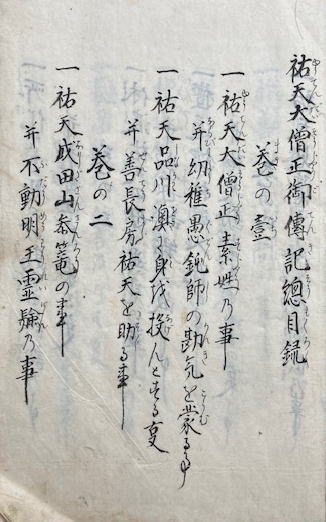 祐天大僧正御傳記總目録
巻の壹
一 祐天大僧正素姓乃事
并幼稚愚鈍師の勘気を蒙る事
一 祐天品川澳に身を投んとする叓
并善長房祐天を助る事
巻の二
一 祐天成田山参篭の事
并不動明王霊験乃事